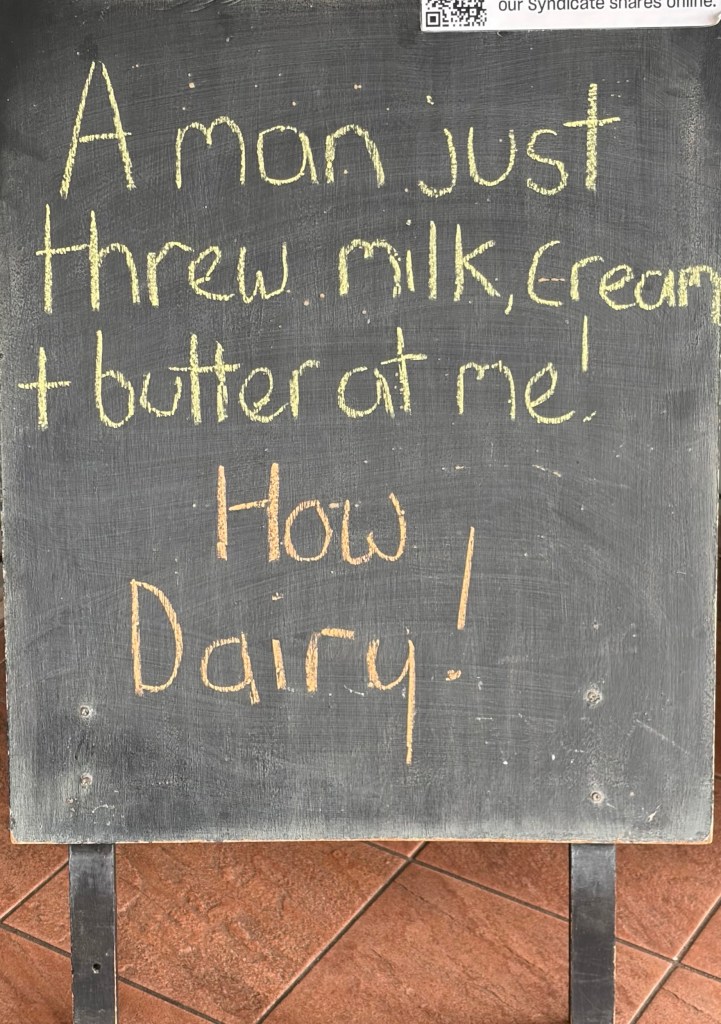 our Syndicate shares online.
A man just
threw milk, cream
+ butter at me!
How
Dairy!